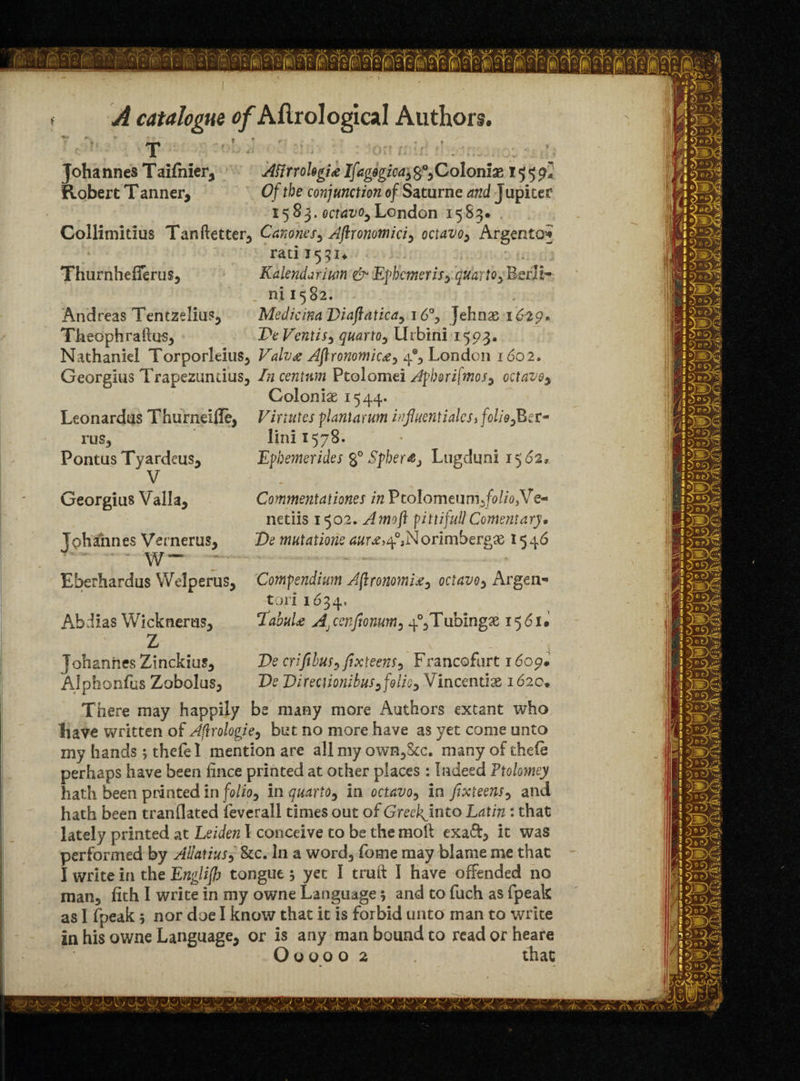 A catalogue of Aſtrological Authors.
T
Johannes Taiſnier, Aſtrrologiæ Iſagogica, 8°, Coloniæ 1559.
Robert Tanner, Of the conjunction of Saturne and Jupiter
1583. octavo, London 1583.
Collimitius Tanſtetter, Canones, Aſtronomici, octavo, Argento-
rati 1531.
Thurnheſſerus, Kalendarium & Ephemeris, quarto, Berli-
ni 1582.
Andreas Tentzelius, Medicina Diaſtatica, 16°, Jehnæ 1629.
Theophraſtus, De Ventis, quarto, Urbini 1593.
Nathaniel Torporleius, Valvæ Aſtronomicæ, 4°, London 1602.
Georgius Trapezuntius, In centum Ptolomei Aphoriſmos, octavo,
Coloniæ 1544.
Leonardus Thurneiſſe, Virtutes plantarum influentiales, folio, Ber-
rus, lini 1578.
Pontus Tyardeus, Ephemerides 8° Spheræ, Lugduni 1562.
V
Georgius Valla, Commentationes in Ptolomeum, folio, Ve-
netiis 1502. A moſt pittifull Comentary.
Johannes Vernerus, De mutatione auræ, 4°, Norimbergæ 1546
W
Eberhardus Welperus, Compendium Aſtronomiæ, octavo, Argen-
tori 1634.
Abdias Wicknerus, Tabulæ Aſcenſionum, 4°, Tubingæ 1561.
Z
Johannes Zinckius, De criſibus, ſixteens, Francofurt 1609.
Alphonſus Zobolus, De Directionibus, folio, Vincentiæ 1620.
There may happily be many more Authors extant who
have written of Aſtrologie, but no more have as yet come unto
my hands; theſe I mention are all my own, &c. many of theſe
perhaps have been ſince printed at other places: Indeed Ptolomey
hath been printed in folio, in quarto, in octavo, in ſixteens, and
hath been tranſlated ſeverall times out of Greek into Latin: that
lately printed at Leiden I conceive to be the moſt exact, it was
performed by Allatius, &c. In a word, ſome may blame me that
I write in the Engliſh tongue; yet I truſt I have offended no
man, ſith I write in my owne Language; and to ſuch as ſpeak
as I ſpeak; nor doe I know that it is forbid unto man to write
in his owne Language, or is any man bound to read or heare
Ooooo 2 that